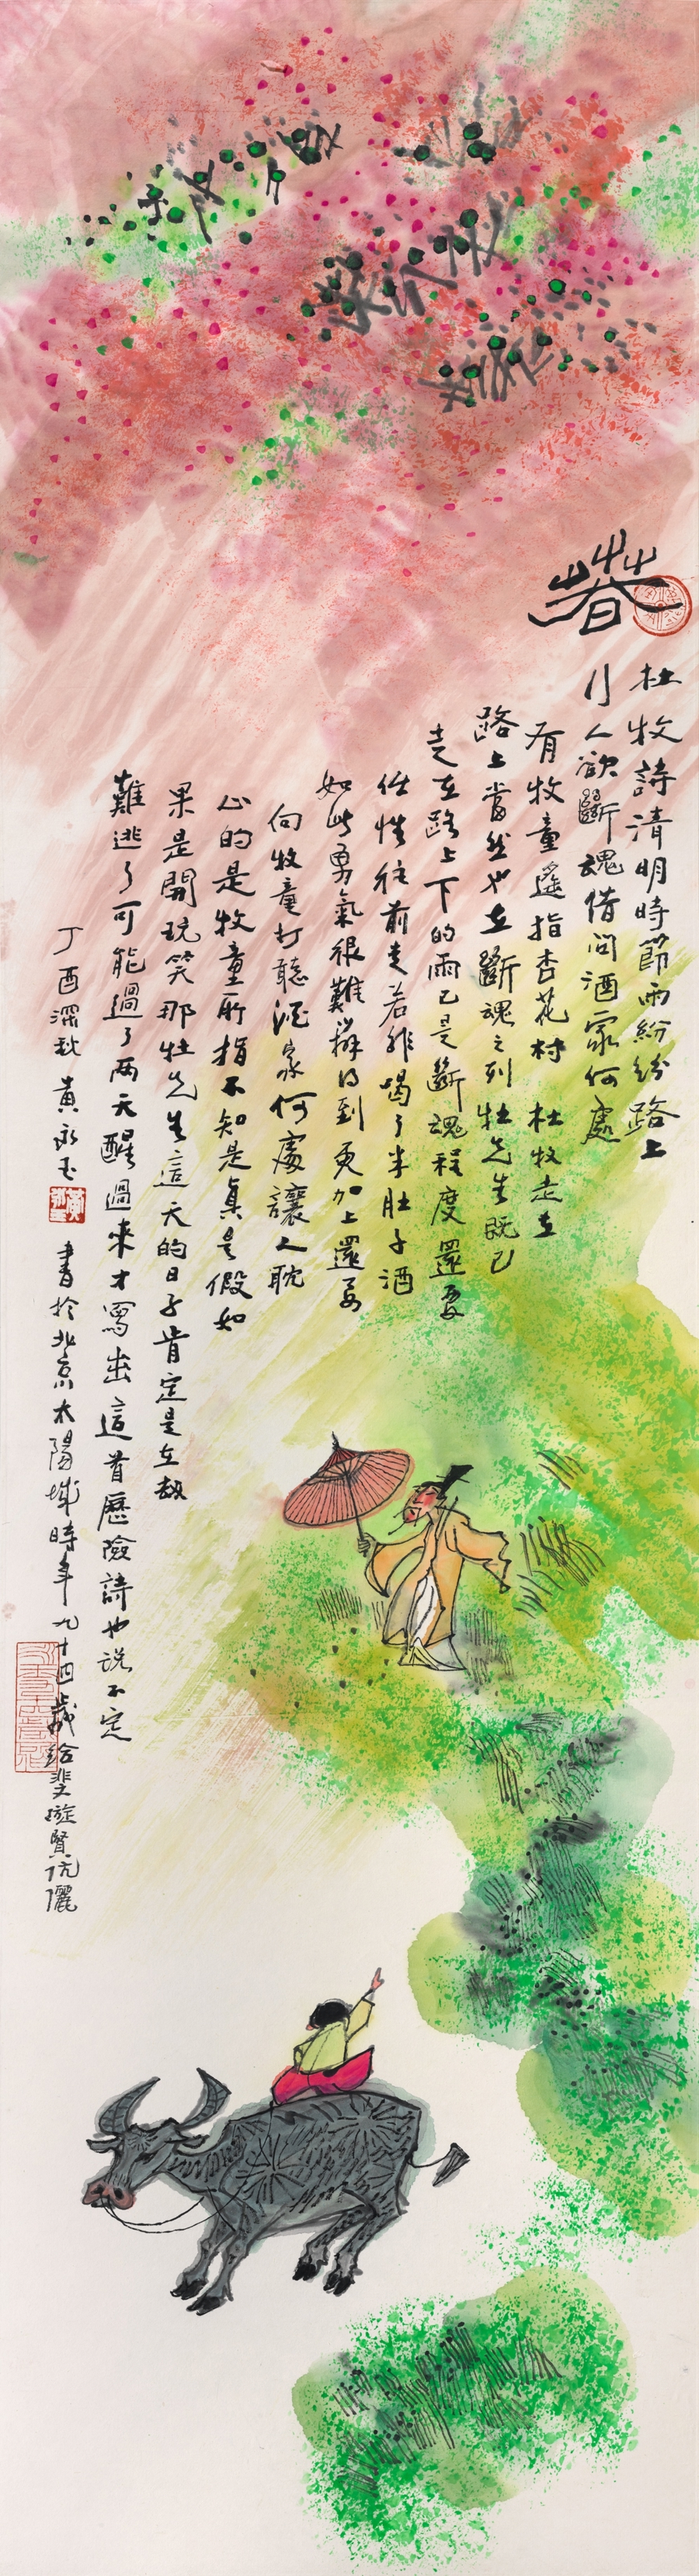 春
杜牧詩清明時節雨紛紛路上
行人欲斷魂借問酒家何處
有牧童遙指杏花村 杜牧走在
路上當然也在斷魂之列杜先生既已
走在路上下的雨已是斷魂程度還要
任性往前走若非喝了半肚子酒
如此勇氣很難辦得到更加上還要
向牧童打聽酒家何處讓人耽
心的是牧童所指不知是真是假如
果是開玩笑那杜先生這天的日子肯定是在劫
難逃了可能過了两天醒過來才寫出這首歷險詩也说不定
丁酉深秋 黃永玉 書於北京太陽城時年九十四歲給斐璇賢伉儷